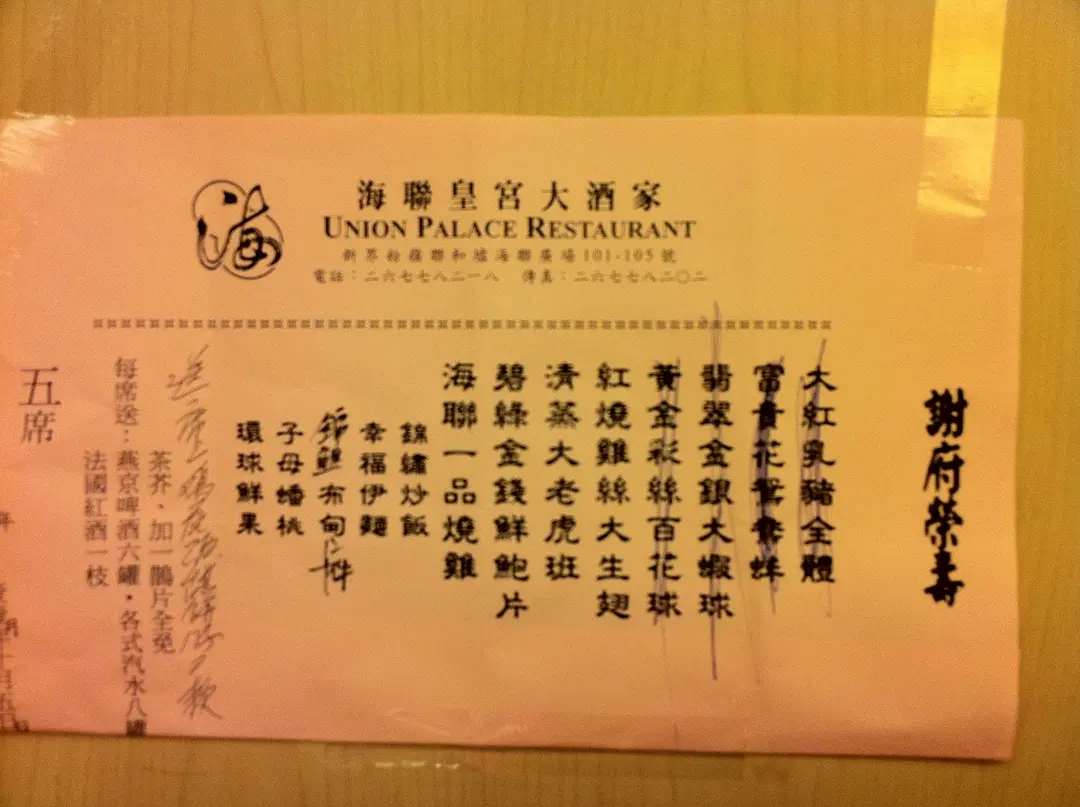 海
海聯皇宮大酒家
UNION PALACE RESTAURANT
新界粉嶺聯和墟海聯廣場101-105號
電話：二六七七八二一八 傳真：二六七七八二〇二
謝府榮壽
大紅乳豬全體
富貴花鴛鴦蚌
翡翠金銀大蝦球
黃金彩絲百花球
紅燒雞絲大生翅
清蒸大老虎班
碧綠金錢鮮鮑片
海聯一品燒雞
錦繡炒飯
幸福伊麵
布甸
子母蟠桃
環球鮮果
茶芥、加一鵲片全免
每席送：燕京啤酒六罐·各式汽水八罐
法國紅酒一枝
五席